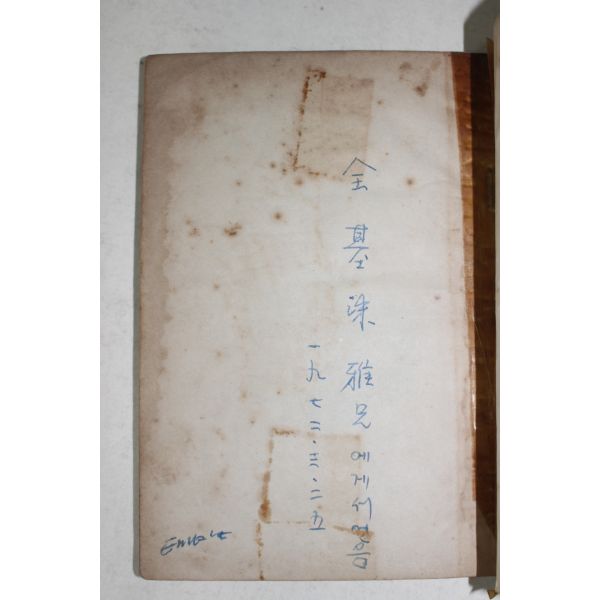 金基洙雅兄에게서얻음
一九七二·三·二五